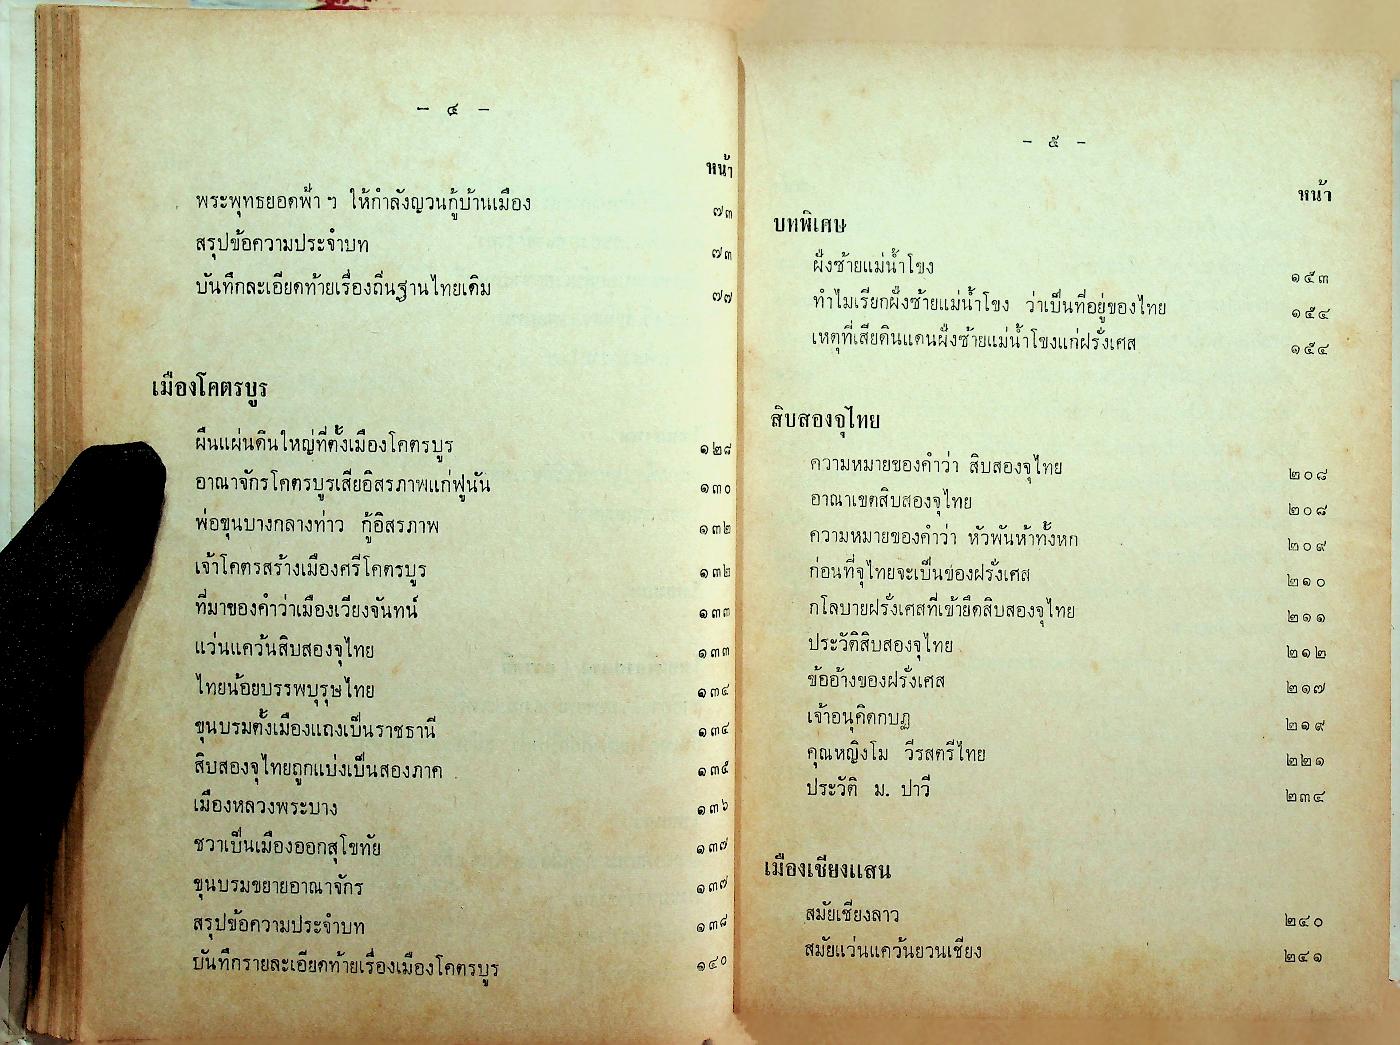 – ๔ –
หน้า
พระพุทธยอดฟ้า ฯ ให้กำลังญวนกู้บ้านเมือง ๗๓
สรุปข้อความประจำบท ๗๓
บันทึกละเอียดท้ายเรื่องถิ่นฐานไทยเดิม ๗๗
เมืองโคตรบูร
ผืนแผ่นดินใหญ่ที่ตั้งเมืองโคตรบูร ๑๒๘
อาณาจักรโคตรบูรเสียอิสรภาพแก่ฟูนัน ๑๓๐
พ่อขุนบางกลางท่าว กู้อิสรภาพ ๑๓๒
เจ้าโคตรสร้างเมืองศรีโคตรบูร ๑๓๒
ที่มาของคำว่าเมืองเวียงจันทน์ ๑๓๓
แว่นแคว้นสิบสองจุไทย ๑๓๓
ไทยน้อยบรรพบุรุษไทย ๑๓๔
ขุนบรมตั้งเมืองแถงเป็นราชธานี ๑๓๔
สิบสองจุไทยถูกแบ่งเป็นสองภาค ๑๓๕
เมืองหลวงพระบาง ๑๓๖
ชวาเป็นเมืองออกสุโขทัย ๑๓๗
ขุนบรมขยายอาณาจักร ๑๓๗
สรุปข้อความประจำบท ๑๓๘
บันทึกรายละเอียดท้ายเรื่องเมืองโคตรบูร ๑๔๐
– ๕ –
หน้า
บทพิเศษ
ฝั่งซ้ายแม่น้ำโขง ๑๕๓
ทำไมเรียกฝั่งซ้ายแม่น้ำโขง ว่าเป็นที่อยู่ของไทย ๑๕๔
เหตุที่เสียดินแดนฝั่งซ้ายแม่น้ำโขงแก่ฝรั่งเศส ๑๕๔
สิบสองจุไทย
ความหมายของคำว่า สิบสองจุไทย ๒๐๘
อาณาเขตสิบสองจุไทย ๒๐๘
ความหมายของคำว่า หัวพันห้าทั้งหก ๒๐๙
ก่อนที่จุไทยจะเป็นของฝรั่งเศส ๒๑๐
กโลบายฝรั่งเศสที่เข้ายึดสิบสองจุไทย ๒๑๑
ประวัติสิบสองจุไทย ๒๑๒
ข้ออ้างของฝรั่งเศส ๒๑๗
เจ้าอนุคิดกบฏ ๒๑๙
คุณหญิงโม วีรสตรีไทย ๒๒๑
ประวัติ ม. ปาวี ๒๓๔
เมืองเชียงแสน
สมัยเชียงลาว ๒๔๐
สมัยแว่นแคว้นยวนเชียง ๒๔๑